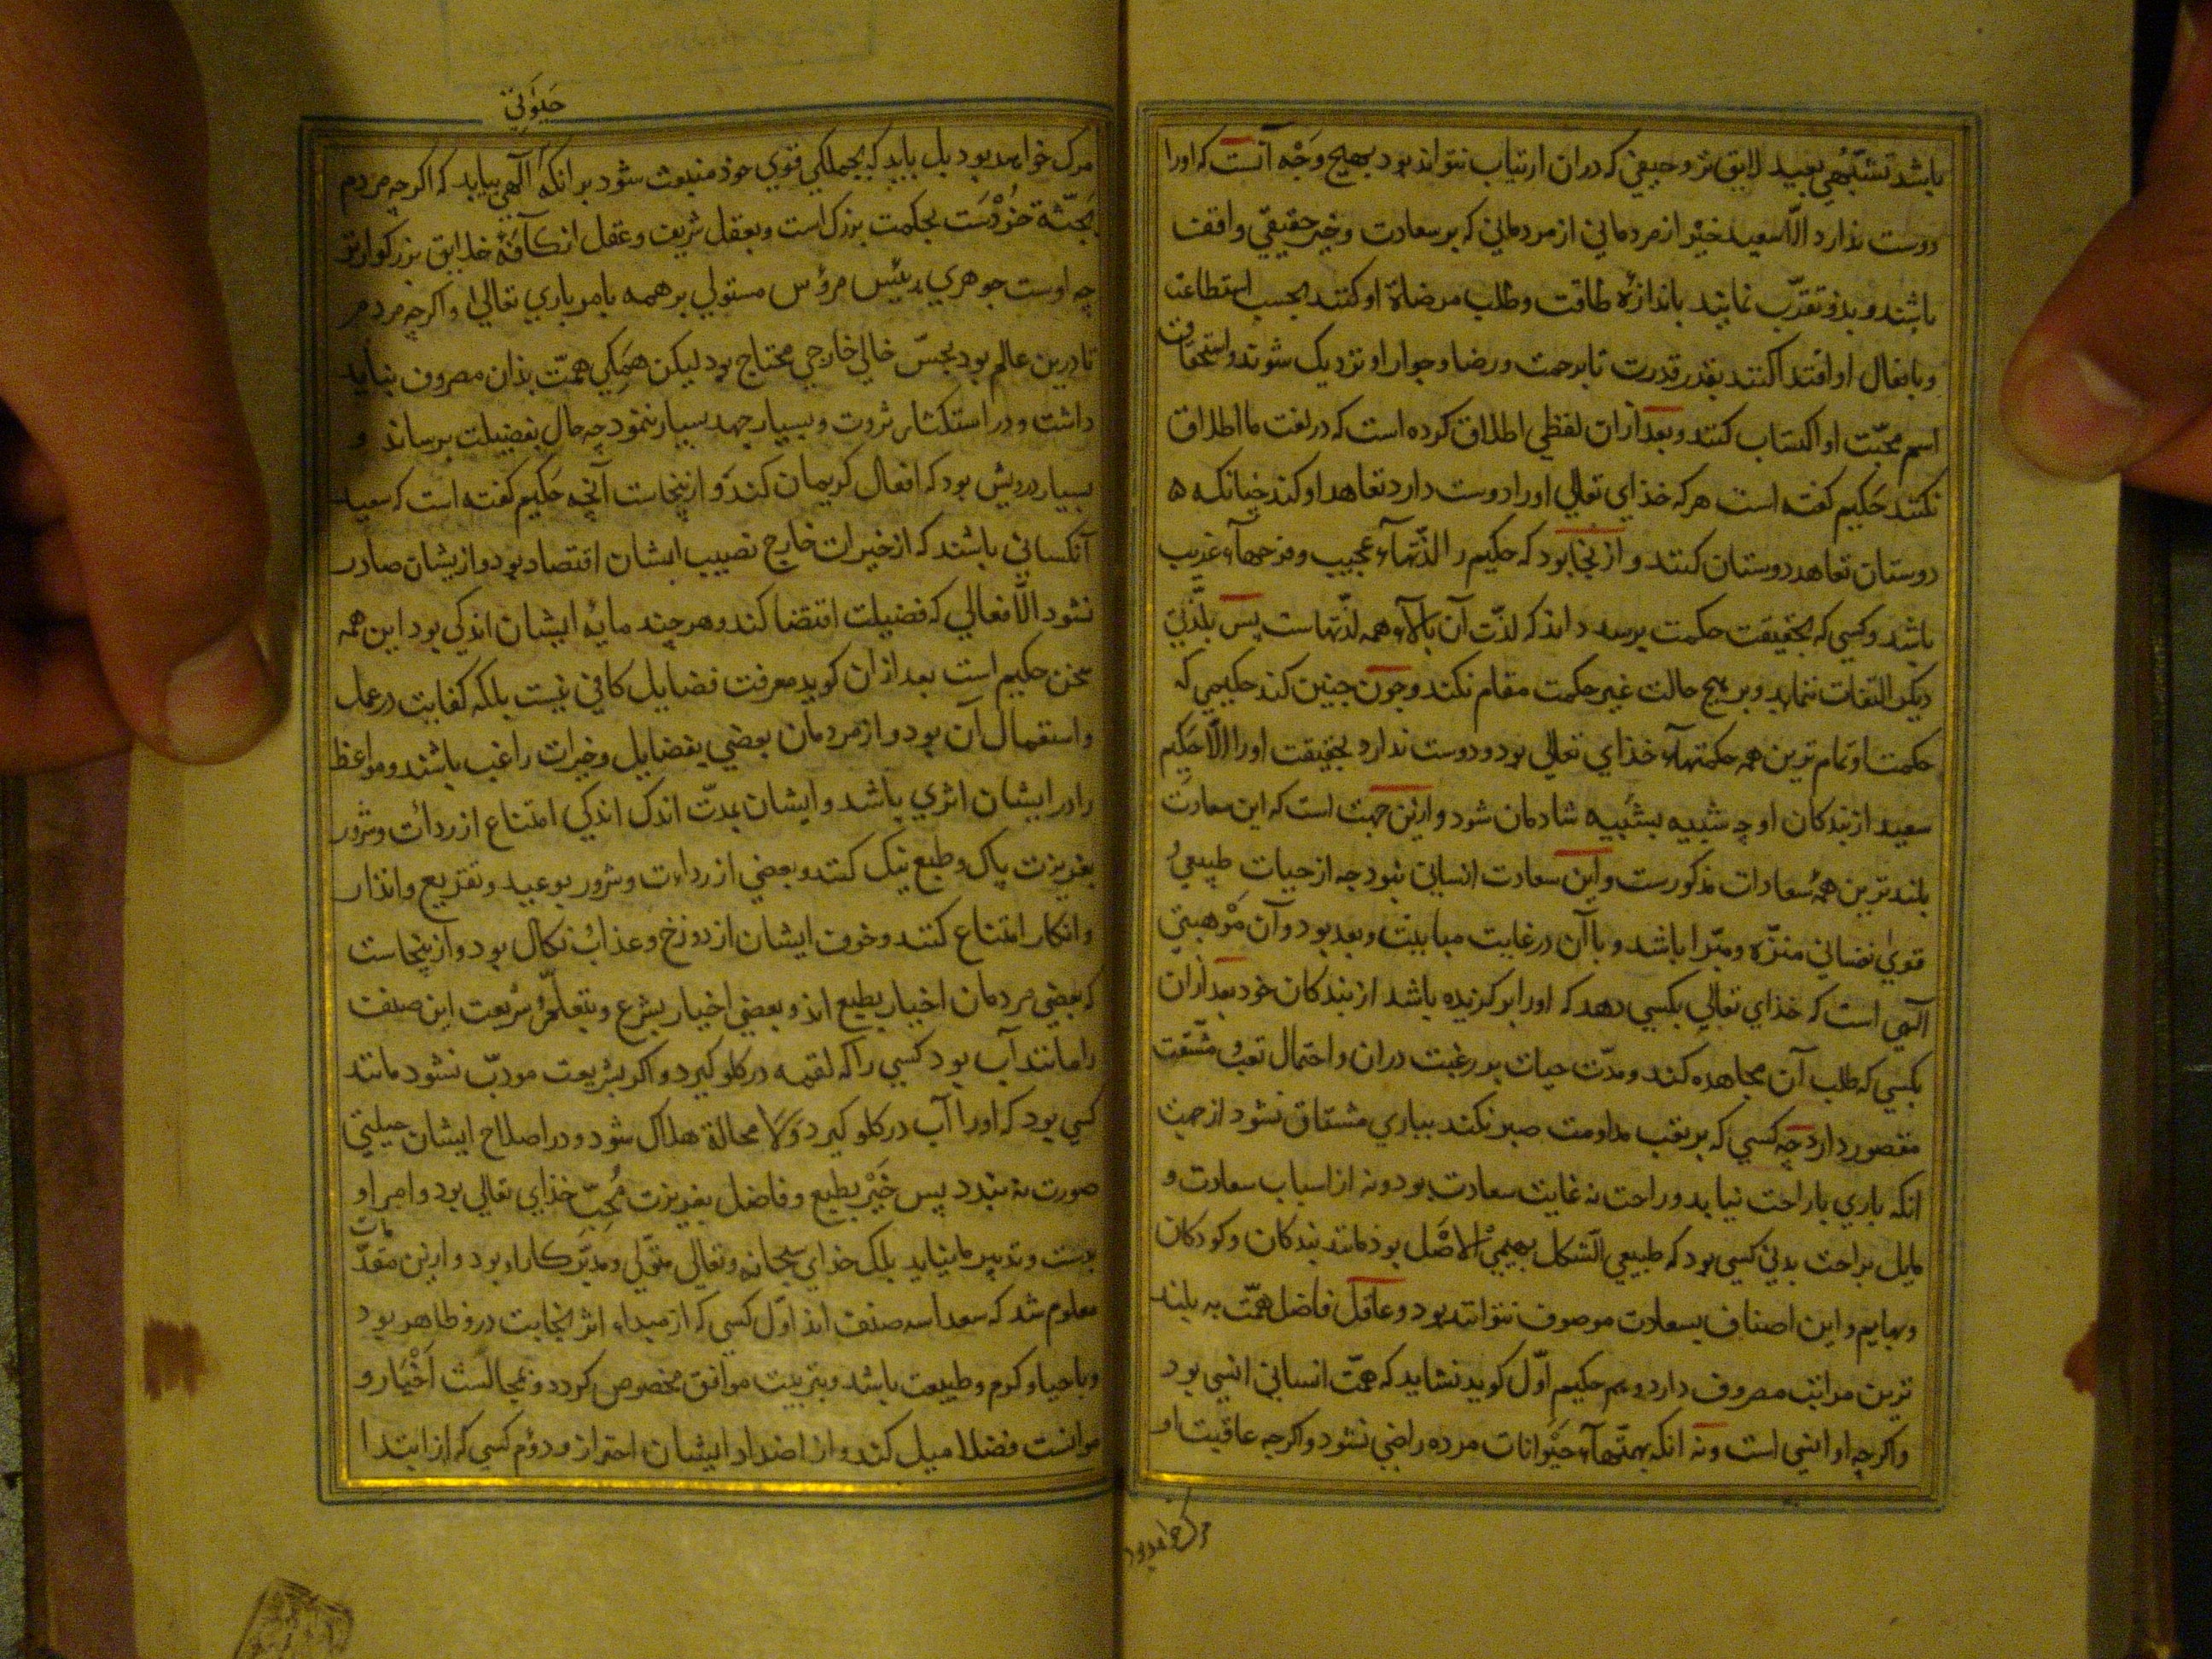 باشد تشبّهی بعید لایق نزد حیفی که دران ارتیاب نتواند بود بهیچ وجه آنست که اورا
دوست ندارد الّا سعید خیّر از مردمانی از مردمانی که بر سعادت وخیر حقیقیّ واقف
باشند و بذو تقرّب نمایند باندازهٔ طاقت وطلب مرضاة او کنند بحسب استطاعت
وبافعال او اقتدا کنند بقدر قدرت تا برحمت ورضا وجوار او نزدیک شوند واستحقاق
اسم محبّت او اکتساب کنند وبعد ازان لفظی اطلاق کرده است که در لغت ما اطلاق
نکنند حکیم کفته است هرکه خذای تعالی اورا دوست دارد تعاهد او کند چنانکه
دوستان تعاهد دوستان کنند و ازینجا بود که حکیم را لذّتهاء عجیب وفرحهاء غریب
باشد وکسی که بحقیقت حکمت برسد داند که لذّت آن بالاء همه لذّتهاست پس بلذّتی
دیکر التفات ننماید وبر هیچ حالت غیر حکمت مقام نکند وچون چنین کند حکیمی که
حکمت او تمام ترین همه حکمتهاء خذای تعالی بود ودوست ندارد بحقیقت اورا الّا حکیم
سعید از بندکان او چه شبیه بشبیه شادمان شود وازین جهت است که این سعادت
بلند ترین همهٔ سعادات مذکورست واین سعادت انسانی نبود چه از حیات طبیعی و
قوی نفسانی منزّه ومبّرا باشد وبا آن در غایت مباینت وبعد بود وآن موهبتی
آلهی است که خذای تعالی بکسی دهد که اورا برکزیده باشد از بندکان خود بعد ازان
بکسی که طلب آن مجاهده کند ومدّت حیات بر رغبت دران واحتمال تعب و مشقت
مقصور دارد چه کسی که بر تعب مداومت صبر نکند ببازی مشتاق شود از جهت
انکه بازی با راحت نیاید وراحت نه غایت سعادت بود ونه از اسباب سعادت و
مایل براحت بدنی کسی بود که طبیعی الشکل بهیمیّ الاصل بود مانند بندکان وکودکان
وبهایم واین اصناف بسعادت موصوف نتوانند بود وعاقل فاضل همّت به بلند
ترین مراتب مصروف دارد وهم حکیم اوّل کوید نشاید که همّت انسانی انسی بود
واکرچه او انسی است ونه انکه بهمّتهاء حیوانات مرده راضی نشود واکرچه عاقبت او
مرک خواهد بود
حیوتی
مرک خواهد بود بل باید که بجملکی قوی خود منبعث شود بر انکه آلهی بیابد که اکرچه مردم
بجثّة خُردست بحکمت بزرک است وبعقل شریف وعقل از کآفّهٔ خلایق بزرکوارتر
چه اوست جوهری رئیس مرؤس مستولی بر همه بامر باری تعالی واکرچه مردم
تا درین عالم بود بحسن حالی خارجی محتاج بود لیکن همکی همّت بذان مصروف نباید
داشت ودر استکثار ثروت ویسیار جهد بسیار ننمود چه مال بفضیلت برساند و
بسیار درویش بود که افعال کریمان کند وازینجاست آنچه حکیم کفته است که سعید
آنکسانی باشند که از خیرات خارج نصیب ایشان اقتصاد بود واز یشان صادر
نشود الّا فعالی که فضیلت اقتضا کند وهرچند مایهٔ ایشان اندکی بود این همه
سخن حکیم است بعد ازان کوید معرفت فضایل کافی نیست بلکه کفایت در عمل
واستعمال آن بود واز مردمان بعضی بفضایل وخیرات راغب باشند ومواعظ
را در ایشان اثری باشد وایشان بمدّت اندک اندکی امتناع از ردائت وشرور
بغریزت پاک وطبع نیک کنند وبعضی از رداءت وشرور بوعید وتقریع وانذار
وانکار امتناع کنند وخوف ایشان از دوزخ وعذاب ونکال بود وازینجاست
که بعضی مردمان اخیار بطبع اند وبعضی اخیار بشرع وبتعلّم شریعت این صنف
را مانند آب بود کسی را که لقمه در کلو کیرد واکر بشریعت مودّب نشود مانند
کسی بود که اورا آب در کلو کیرد ولا محالة هلاک شود ودر اصلاح ایشان حیلتی
صورت نه بندد پس خیّر بطبع وفاضل بغریزت محُبّ خذای تعالی بود وامر او
بدست وتدبیر ما نیاید بلک خذای سبحانه وتعالی متوّلی ومدبّر کار او بود وازین مقدّمات
معلوم شد که سعدا سه صنف اند اوّل کسی که از مبداء اثر نجابت درو ظاهر بود
وبا حیا وکرم وطبیعت باشد وبتربیت موافق مخصوص کردد وبمجالست اَخْیار و
موانست فضلا میل کند واز اضداد ایشان احتراز ودوّم کسی که از ابتدا